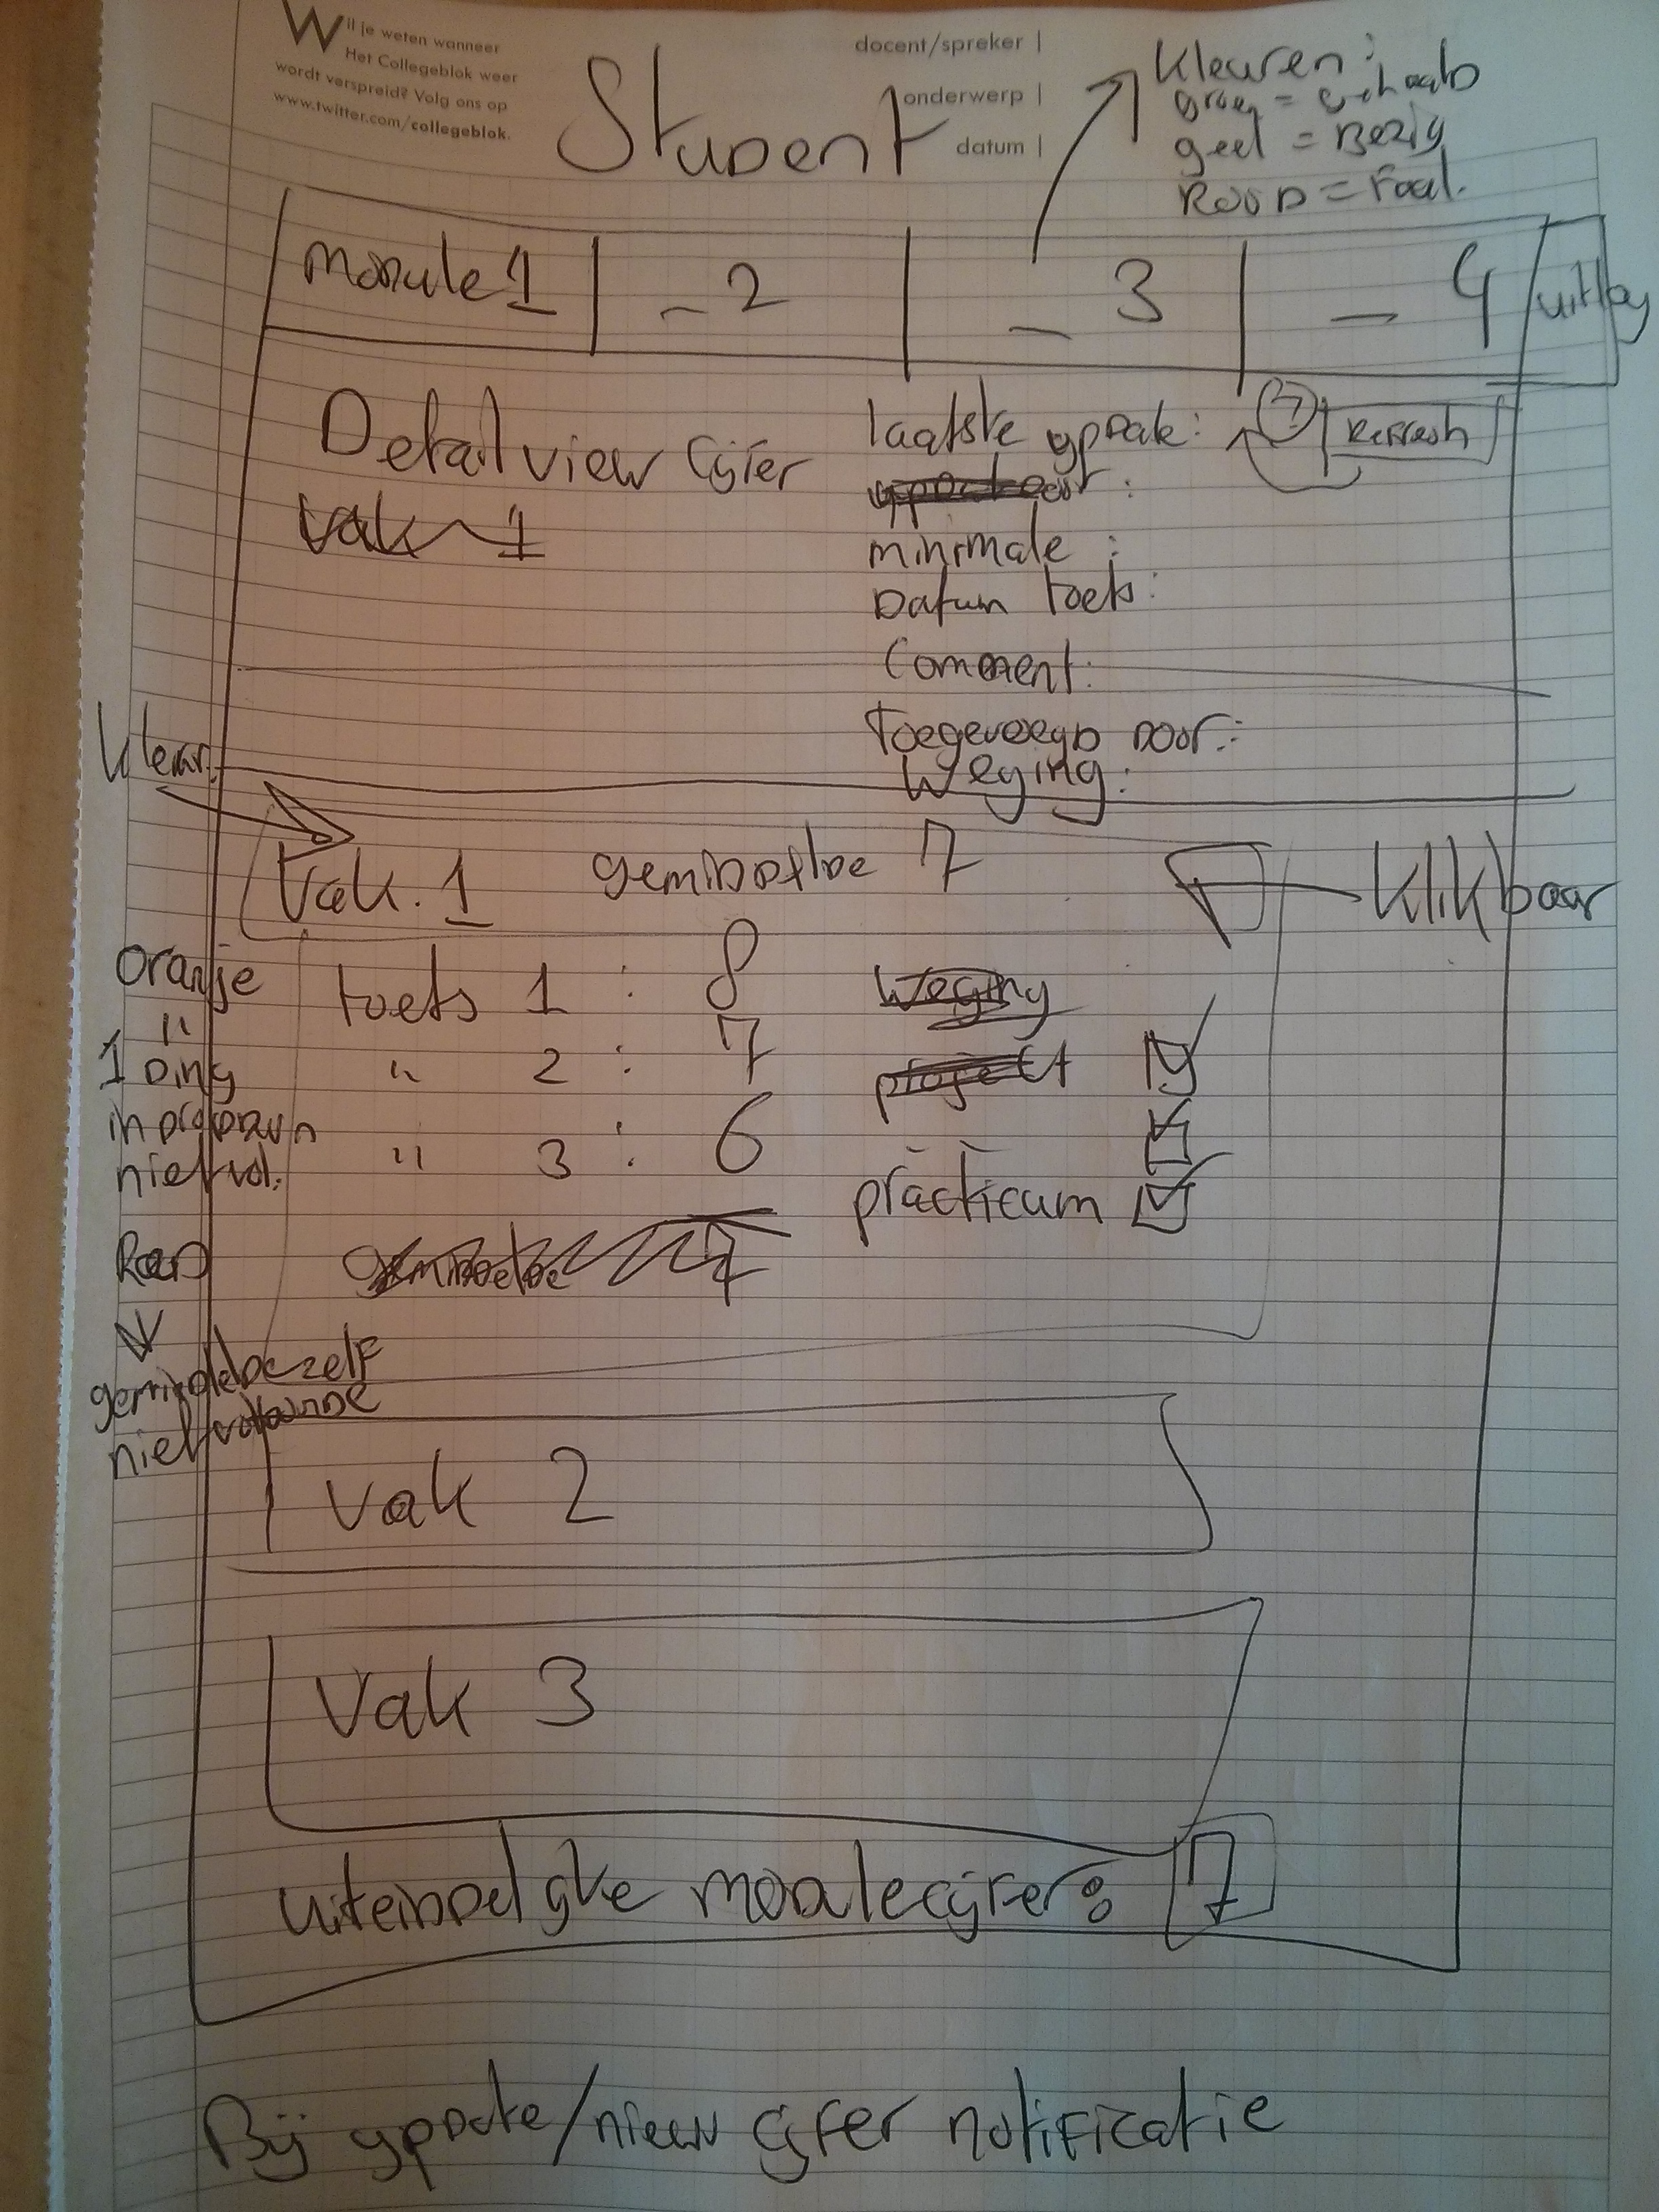 Wil je weten wanneer
Het Collegeblok weer
wordt verspreid? Volg ons op
www.twitter.com/collegeblok.
docent/spreker |
onderwerp |
datum |
Student
Kleuren:
groen = gehaald
geel = Bezig
ROOD = Faal.
module 1 | _ 2 | _ 3 | _ 4 | uitlog
Detail view cijfer
vak 1
laatste update: Refresh
minimale :
Datum toets:
Comment:
Toegevoegd door:
Weging:
kleur
Vak. 1 gemiddelde 7
Klikbaar
toets 1 : 8 weging
" 2 : 7 project
" 3 : 6
practicum
gemiddelde 7
oranje
"
1 Ding
niet vol.
Rood
gemiddelde zelf
niet voldoende
Vak 2
Vak 3
uiteindelijke modulecijfer: 7
Bij update/nieuw cijfer notificatie